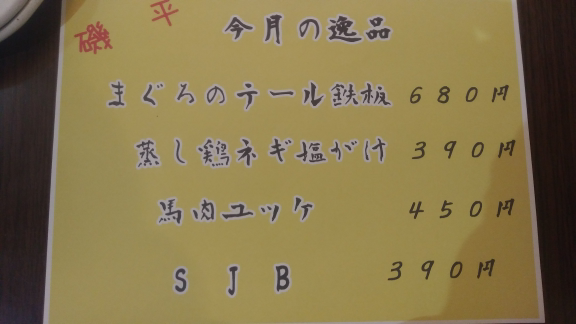 磯平
今月の逸品
まぐろのテール鉄板 680円
蒸し鶏ネギ塩がけ 390円
馬肉ユッケ 450円
SJB 390円